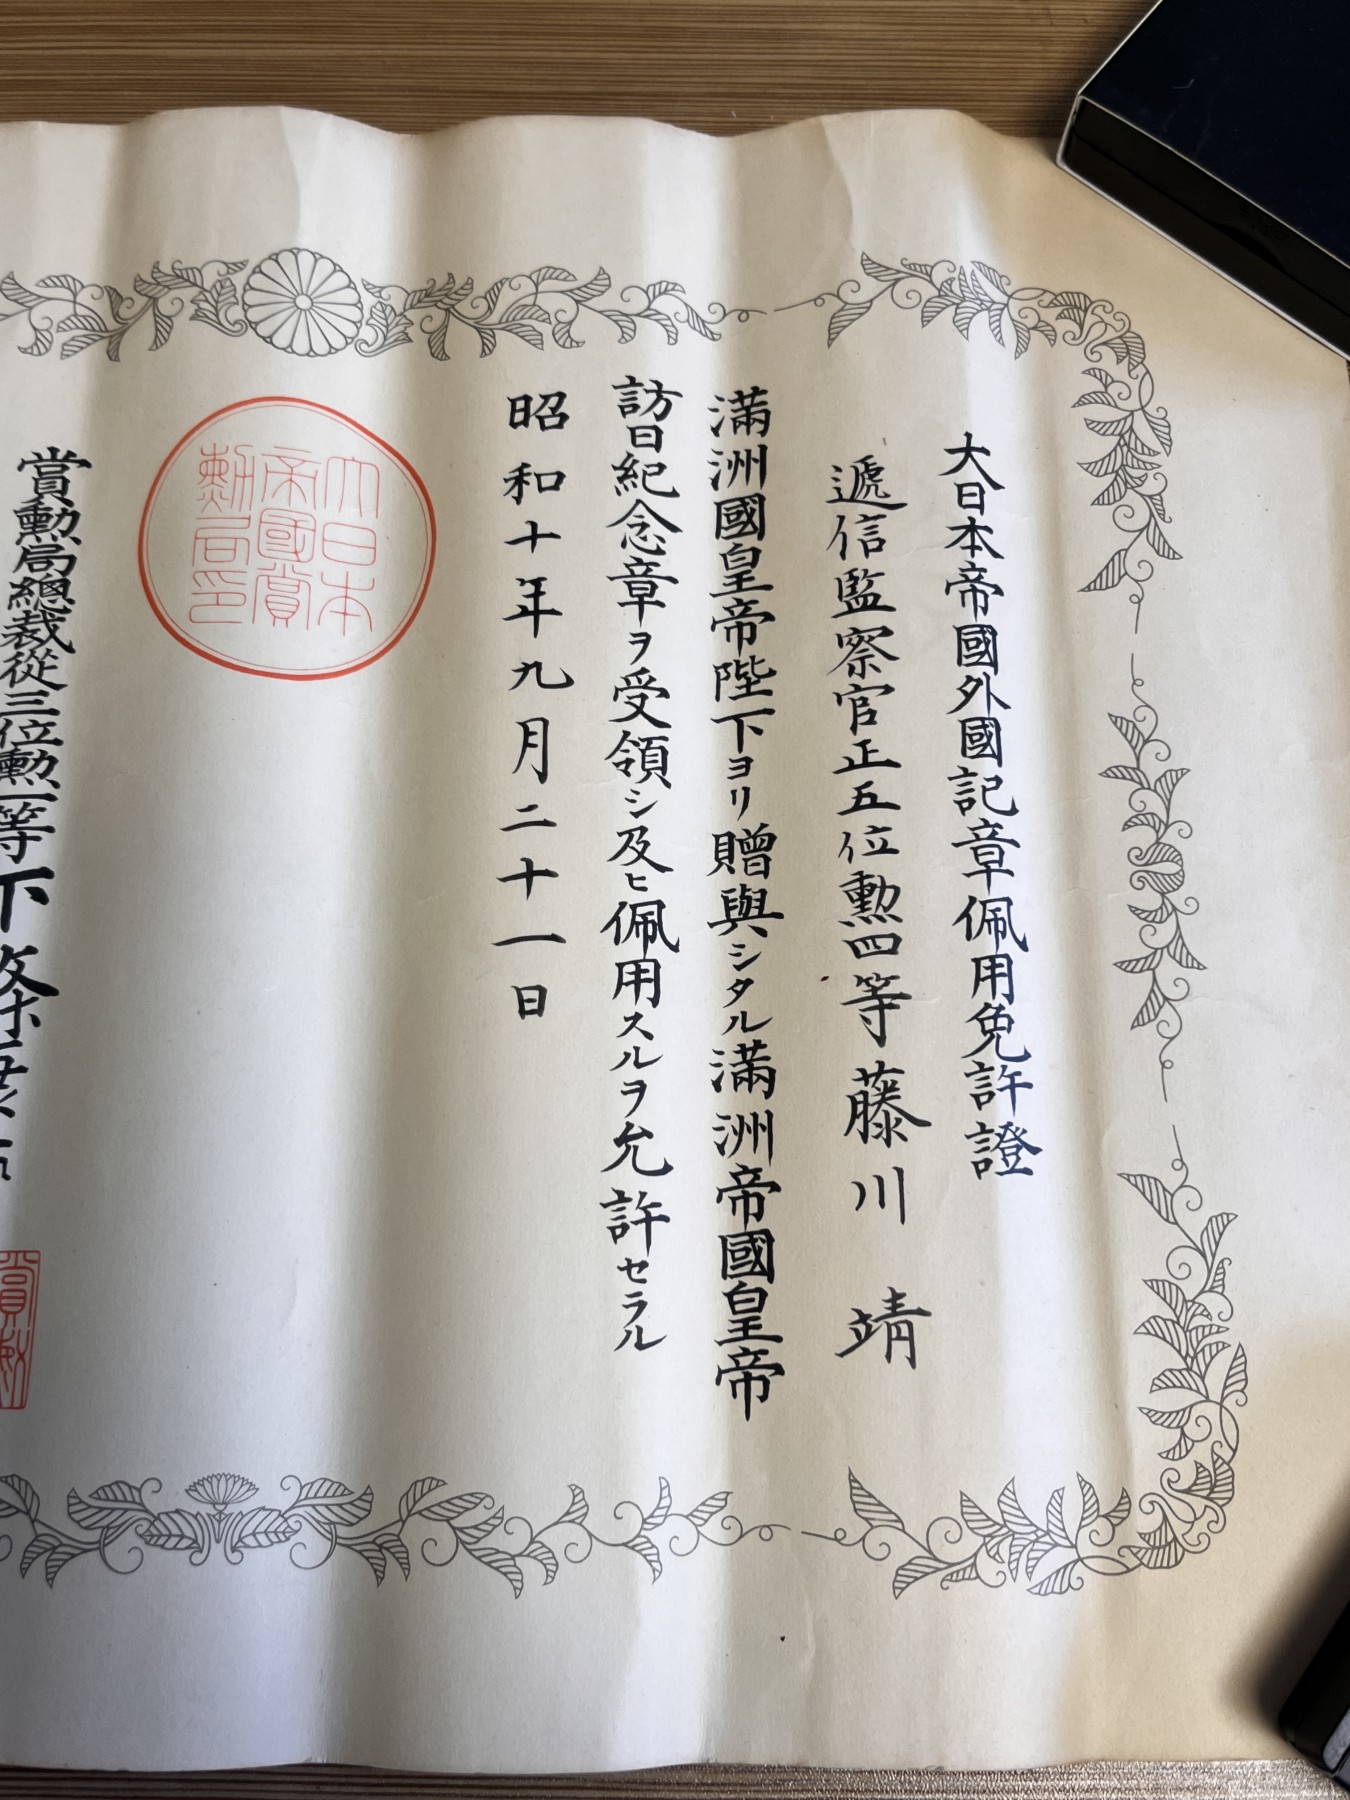 大日本帝國外國記章佩用免許證
遞信監察官正五位勲四等藤川靖
滿洲國皇帝陛下ヨリ贈與シタル滿洲帝國皇帝
訪日紀念章ヲ受領シ及ヒ佩用スルヲ允許セラル
昭和十年九月二十一日
大日本
帝國賞
勲局印
賞勲局總裁從三位勲一等下